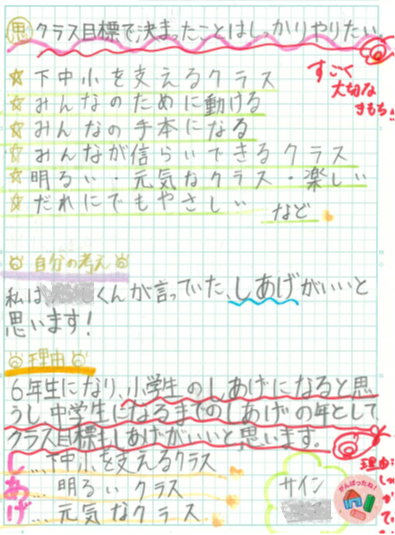 思 クラス目標で決まったことはしっかりやりたい。
すごく
大切な
きもち!!
☆下中小を支えるクラス
☆みんなのために動ける
☆みんなの手本になる
☆みんなが信らいできるクラス
☆明るい・元気なクラス・楽しい
☆だれにでもやさしい
など
自分の考え
私は くんが言っていた、しあげがいいと
思います!
理由
6年生になり、小学生のしあげになると思
うし、中学生になるまでのしあげの年として
クラス目標もしあげがいいと思います。
しあげ
…下中小を支えるクラス
…明るいクラス
…元気なクラス
サイン
理由
がんばったね!